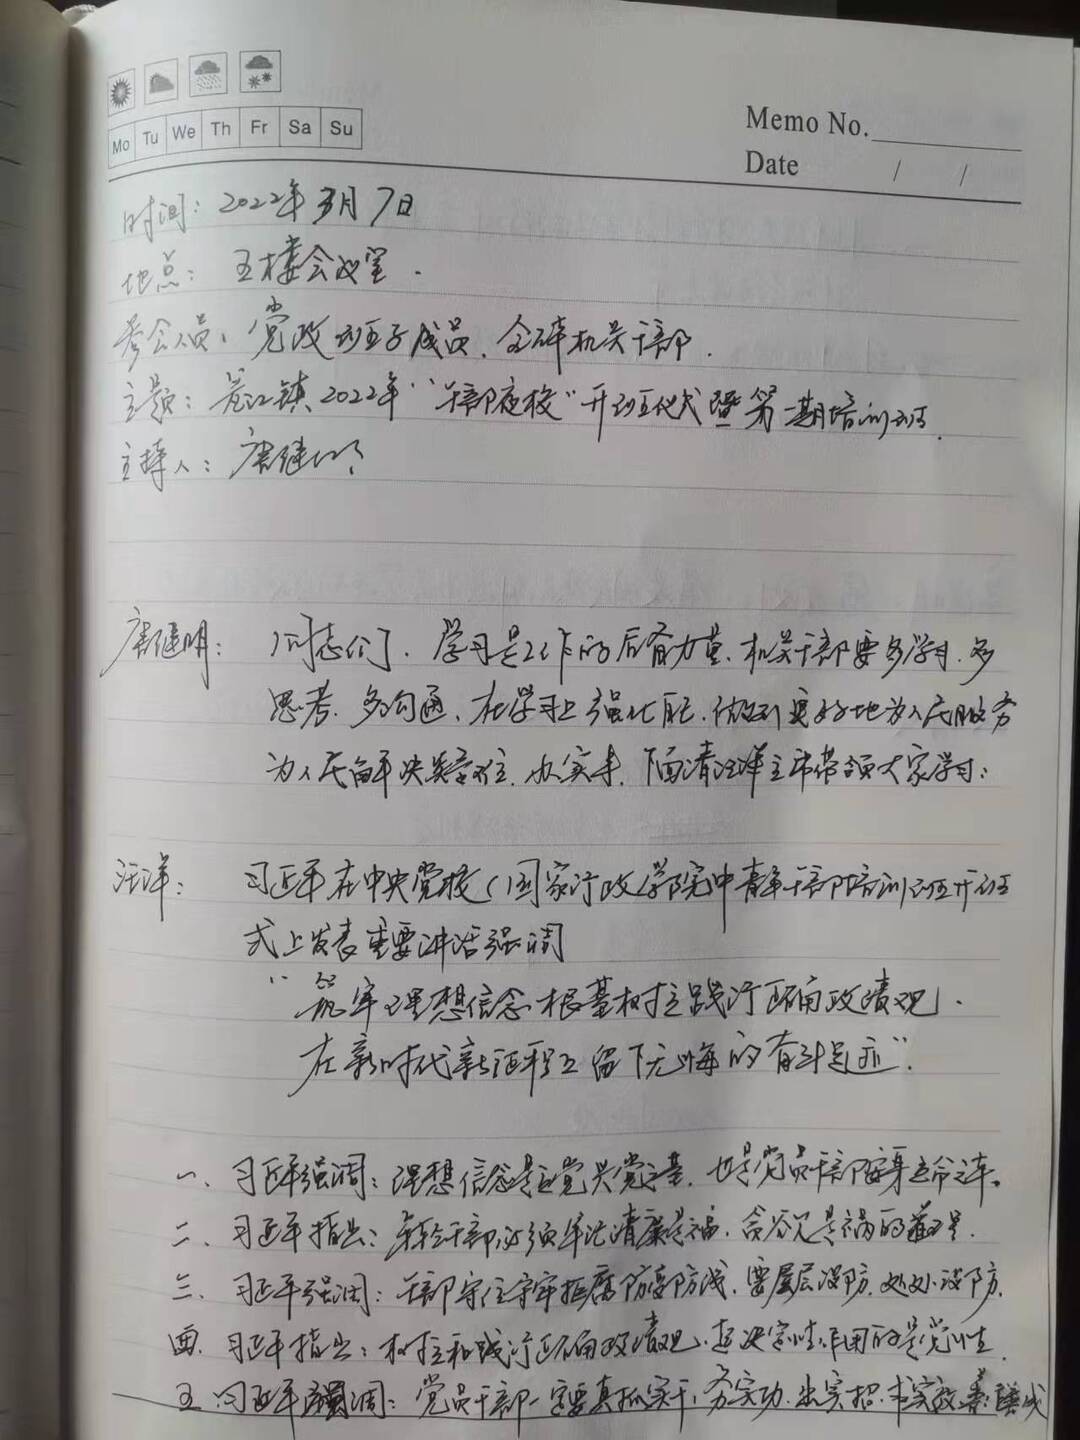 Mo Tu We Th Fr Sa Su
Memo No.
Date / /
时间：2022年3月7日
地点：五楼会议室.
参会人员：党政班子成员、全体机关干部.
主题：江镇2022年“干部夜校”开班仪式暨第一期培训班.
主持人：唐继明
唐继明：同志们、学习是工作的后备力量、机关干部要多学习、多
思考、多沟通、在学习上强化自己、做到更好地为人民服务
为人民解决难, 办实事, 下面请汪洋主席带领大家学习：
汪洋：习近平在中央党校(国家行政学院中青年干部培训班开班
式上发表重要讲话强调
“筑牢理想信念根基树立践行正确政绩观、
在新时代新征程上留下无悔的奋斗足迹”.
一、习近平强调：理想信念是立党兴党之基, 也是党员干部安身立命之本。
二、习近平指出：年轻干部必须牢记清廉是福、贪欲是祸的道理.
三、习近平强调：干部守住守牢拒腐防变防线、要层层设防、处处设防.
四、习近平指出：树立和践行正确政绩观、起决定性作用的是党性.
五、习近平强调：党员干部一定要真抓实干、务实功、出实招、求实效、善作善成